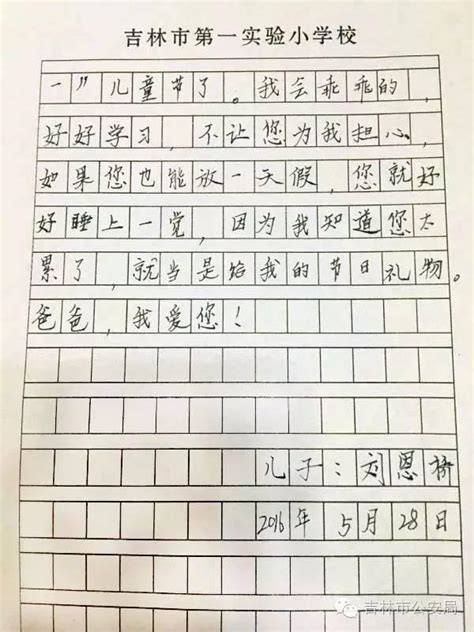 吉林市第一实验小学校
一”儿童节了。我会乖乖的，
好好学习，不让您为我担心，
如果您也能放一天假，您就好
好睡上一觉，因为我知道您太
累了，就当是给我的节日礼物。
爸爸，我爱您！
儿子：刘恩桥
2016年5月28日
吉林市公安局